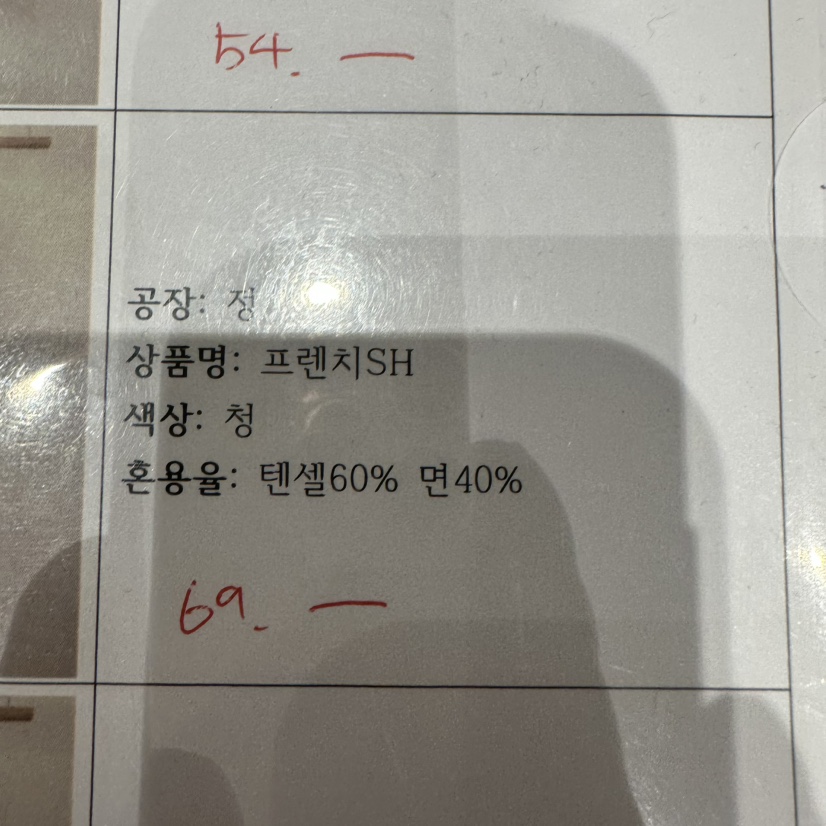 54. —
공장: 정
상품명: 프렌치SH
색상: 청
혼용율: 텐셀60% 면40%
69. —